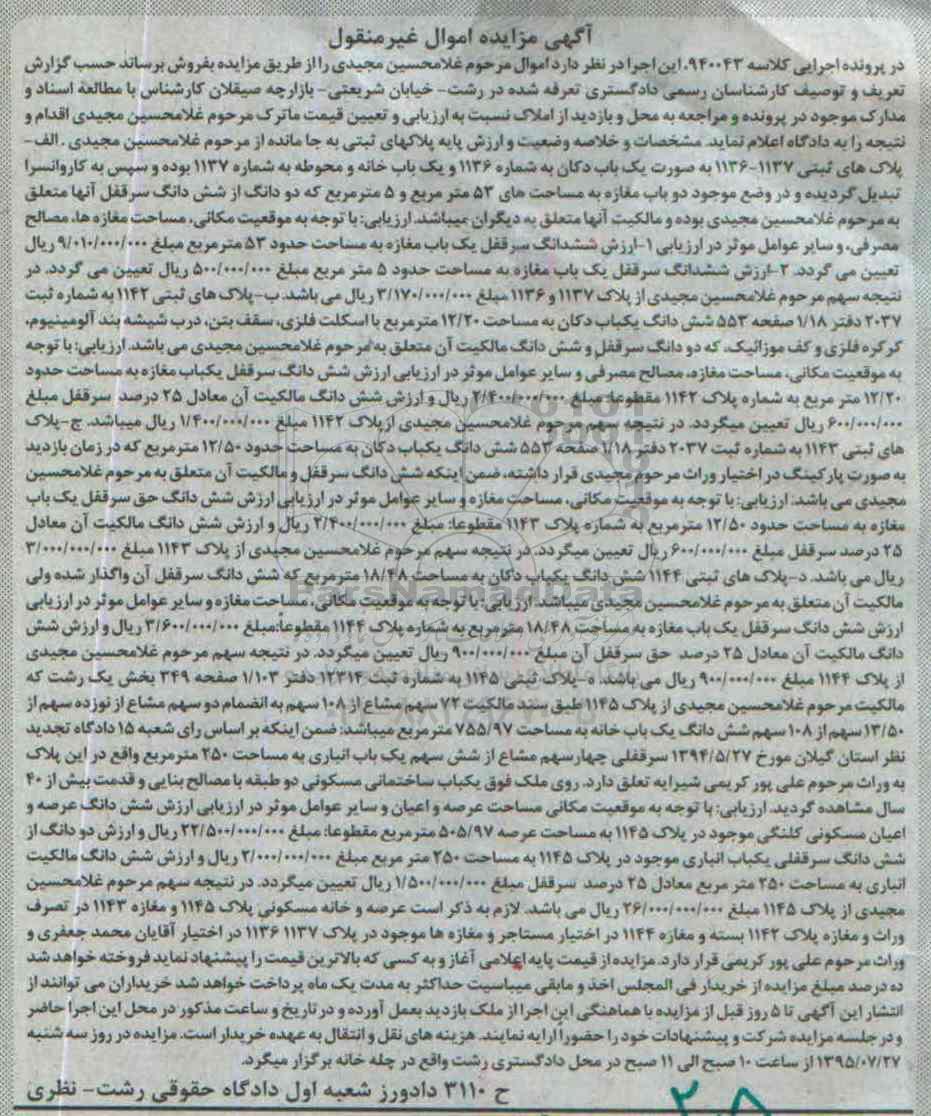 آگهی مزایده اموال غیرمنقول
در پرونده اجرایی کلاسه ۹۴۰۰۴۳، این اجرا در نظر دارد اموال مرحوم غلامحسین مجیدی را از طریق مزایده بفروش برساند حسب گزارش
تعریف و توصیف کارشناسان رسمی دادگستری تعرفه شده در رشت- خیابان شریعتی- بازارچه صیقلان کارشناس با مطالعه اسناد و
مدارک موجود در پرونده و مراجعه به محل و بازدید از املاک نسبت به ارزیابی و تعیین قیمت ماترک مرحوم غلامحسین مجیدی اقدام و
نتیجه را به دادگاه اعلام نماید. مشخصات و خلاصه وضعیت و ارزش پایه پلاکهای ثبتی به جا مانده از مرحوم غلامحسین مجیدی . الف-
پلاک های ثبتی ۱۱۳۷-۱۱۳۶ به صورت یک باب دکان به شماره ۱۱۳۶ و یک باب خانه و محوطه به شماره ۱۱۳۷ بوده و سپس به کاروانسرا
تبدیل گردیده و در وضع موجود دو باب مغازه به مساحت های ۵۳ متر مربع و ۵ مترمربع که دو دانگ از شش دانگ سرقفل آنها متعلق
به مرحوم غلامحسین مجیدی بوده و مالکیت آنها متعلق به دیگران میباشد. ارزیابی: با توجه به موقعیت مکانی، مساحت مغازه ها، مصالح
مصرفی، و سایر عوامل موثر در ارزیابی ۱-ارزش ششدانگ سرقفل یک باب مغازه به مساحت حدود ۵۳ مترمربع مبلغ ۹/۰۱۰/۰۰۰/۰۰۰ ریال
تعیین می گردد. ۲-ارزش ششدانگ سرقفل یک باب مغازه به مساحت حدود ۵ متر مربع مبلغ ۵۰۰/۰۰۰/۰۰۰ ریال تعیین می گردد. در
نتیجه سهم مرحوم غلامحسین مجیدی از پلاک ۱۱۳۷ و ۱۱۳۶ مبلغ ۳/۱۷۰/۰۰۰/۰۰۰ ریال می باشد. ب-پلاک های ثبتی ۱۱۴۲ به شماره ثبت
۲۰۳۷ دفتر ۱/۱۸ صفحه ۵۵۳ شش دانگ یکباب دکان به مساحت ۱۲/۲۰ مترمربع با اسکلت فلزی، سقف بتن، درب شیشه بند آلومینیوم،
کرکره فلزی و کف موزائیک، که دو دانگ سرقفل و شش دانگ مالکیت آن متعلق به مرحوم غلامحسین مجیدی می باشد. ارزیابی: با توجه
به موقعیت مکانی، مساحت مغازه، مصالح مصرفی و سایر عوامل موثر در ارزیابی ارزش شش دانگ سرقفل یکباب مغازه به مساحت حدود
۱۲/۲۰ متر مربع به شماره پلاک ۱۱۴۲ مقطوعا: مبلغ ۲/۴۰۰/۰۰۰/۰۰۰ ریال و ارزش شش دانگ مالکیت آن معادل ۲۵ درصد سرقفل مبلغ
۶۰۰/۰۰۰/۰۰۰ ریال تعیین میگردد. در نتیجه سهم مرحوم غلامحسین مجیدی از پلاک ۱۱۴۲ مبلغ ۱/۴۰۰/۰۰۰/۰۰۰ ریال میباشد. ج-پلاک
های ثبتی ۱۱۴۳ به شماره ثبت ۲۰۳۷ دفتر ۱/۱۸ صفحه ۵۵۳ شش دانگ یکباب دکان به مساحت حدود ۱۲/۵۰ مترمربع که در زمان بازدید
به صورت پارکینگ در اختیار وراث مرحوم مجیدی قرار داشته، ضمن اینکه شش دانگ سرقفل و مالکیت آن متعلق به مرحوم غلامحسین
مجیدی می باشد. ارزیابی: با توجه به موقعیت مکانی، مساحت مغازه و سایر عوامل موثر در ارزیابی ارزش شش دانگ حق سرقفل یک باب
مغازه به مساحت حدود ۱۲/۵۰ مترمربع به شماره پلاک ۱۱۴۳ مقطوعا: مبلغ ۲/۴۰۰/۰۰۰/۰۰۰ ریال و ارزش شش دانگ مالکیت آن معادل
۲۵ درصد سرقفل مبلغ ۶۰۰/۰۰۰/۰۰۰ ریال تعیین میگردد. در نتیجه سهم مرحوم غلامحسین مجیدی از پلاک ۱۱۴۳ مبلغ ۳/۰۰۰/۰۰۰/۰۰۰
ریال می باشد. د-پلاک های ثبتی ۱۱۴۴ شش دانگ یکباب دکان به مساحت ۱۸/۴۸ مترمربع که شش دانگ سرقفل آن واگذار شده ولی
مالکیت آن متعلق به مرحوم غلامحسین مجیدی میباشد. ارزیابی: با توجه به موقعیت مکانی، مساحت مغازه و سایر عوامل موثر در ارزیابی
ارزش شش دانگ سرقفل یک باب مغازه به مساحت ۱۸/۴۸ مترمربع به شماره پلاک ۱۱۴۴ مقطوعا:مبلغ ۳/۶۰۰/۰۰۰/۰۰۰ ریال و ارزش شش
دانگ مالکیت آن معادل ۲۵ درصد حق سرقفل آن مبلغ ۹۰۰/۰۰۰/۰۰۰ ریال تعیین میگردد. در نتیجه سهم مرحوم غلامحسین مجیدی
از پلاک ۱۱۴۴ مبلغ ۹۰۰/۰۰۰/۰۰۰ ریال می باشد. ه-پلاک ثبتی ۱۱۴۵ به شماره ثبت ۱۲۳۱۴ دفتر ۱/۱۰۳ صفحه ۳۴۹ بخش یک رشت که
مالکیت مرحوم غلامحسین مجیدی از پلاک ۱۱۴۵ طبق سند مالکیت ۷۲ سهم مشاع از ۱۰۸ سهم به انضمام دو سهم مشاع از نوزده سهم از
۱۳/۵۰ سهم از ۱۰۸ سهم شش دانگ یک باب خانه به مساحت ۷۵۵/۹۷ مترمربع میباشد: ضمن اینکه بر اساس رای شعبه ۱۵ دادگاه تجدید
نظر استان گیلان مورخ ۱۳۹۴/۵/۲۷ سرقفلی چهارسهم مشاع از شش سهم یک باب انباری به مساحت ۲۵۰ مترمربع واقع در این پلاک
به وراث مرحوم علی پور کریمی شیرایه تعلق دارد. روی ملک فوق یکباب ساختمانی مسکونی دو طبقه با مصالح بنایی و قدمت بیش از ۴۰
سال مشاهده گردید. ارزیابی: با توجه به موقعیت مکانی مساحت عرصه و اعیان و سایر عوامل موثر در ارزیابی ارزش شش دانگ عرصه و
اعیان مسکونی کلنگی موجود در پلاک ۱۱۴۵ به مساحت عرصه ۵۰۵/۹۷ مترمربع مقطوعا: مبلغ ۲۲/۵۰۰/۰۰۰/۰۰۰ ریال و ارزش دو دانگ از
شش دانگ سرقفلی یکباب انباری موجود در پلاک ۱۱۴۵ به مساحت ۲۵۰ متر مربع مبلغ ۲/۰۰۰/۰۰۰/۰۰۰ ریال و ارزش شش دانگ مالکیت
انباری به مساحت ۲۵۰ متر مربع معادل ۲۵ درصد سرقفل مبلغ ۱/۵۰۰/۰۰۰/۰۰۰ ریال تعیین میگردد. در نتیجه سهم مرحوم غلامحسین
مجیدی از پلاک ۱۱۴۵ مبلغ ۲۶/۰۰۰/۰۰۰/۰۰۰ ریال می باشد. لازم به ذکر است عرصه و خانه مسکونی پلاک ۱۱۴۵ و مغازه ۱۱۴۳ در تصرف
وراث و مغازه پلاک ۱۱۴۲ بسته و مغازه ۱۱۴۴ در اختیار مستاجر و مغازه ها موجود در پلاک ۱۱۳۷ ۱۱۳۶ در اختیار آقایان محمد جعفری و
وراث مرحوم علی پور کریمی قرار دارد. مزایده از قیمت پایه اعلامی آغاز و به کسی که بالاترین قیمت را پیشنهاد نماید فروخته خواهد شد
ده درصد مبلغ مزایده از خریدار فی المجلس اخذ و مابقی میباسیت حداکثر به مدت یک ماه پرداخت خواهد شد خریداران می توانند از
انتشار این آگهی تا ۵ روز قبل از مزایده با هماهنگی این اجرا از ملک بازدید بعمل آورده و در تاریخ و ساعت مذکور در محل این اجرا حاضر
و در جلسه مزایده شرکت و پیشنهادات خود را حضورا ارایه نمایند. هزینه های نقل و انتقال به عهده خریدار است. مزایده در روز سه شنبه
۱۳۹۵/۰۷/۲۷ از ساعت ۱۰ صبح الی ۱۱ صبح در محل دادگستری رشت واقع در چله خانه برگزار میگرد.
ح ۳۱۱۰ دادورز شعبه اول دادگاه حقوقی رشت- نظری
ParsNamadData